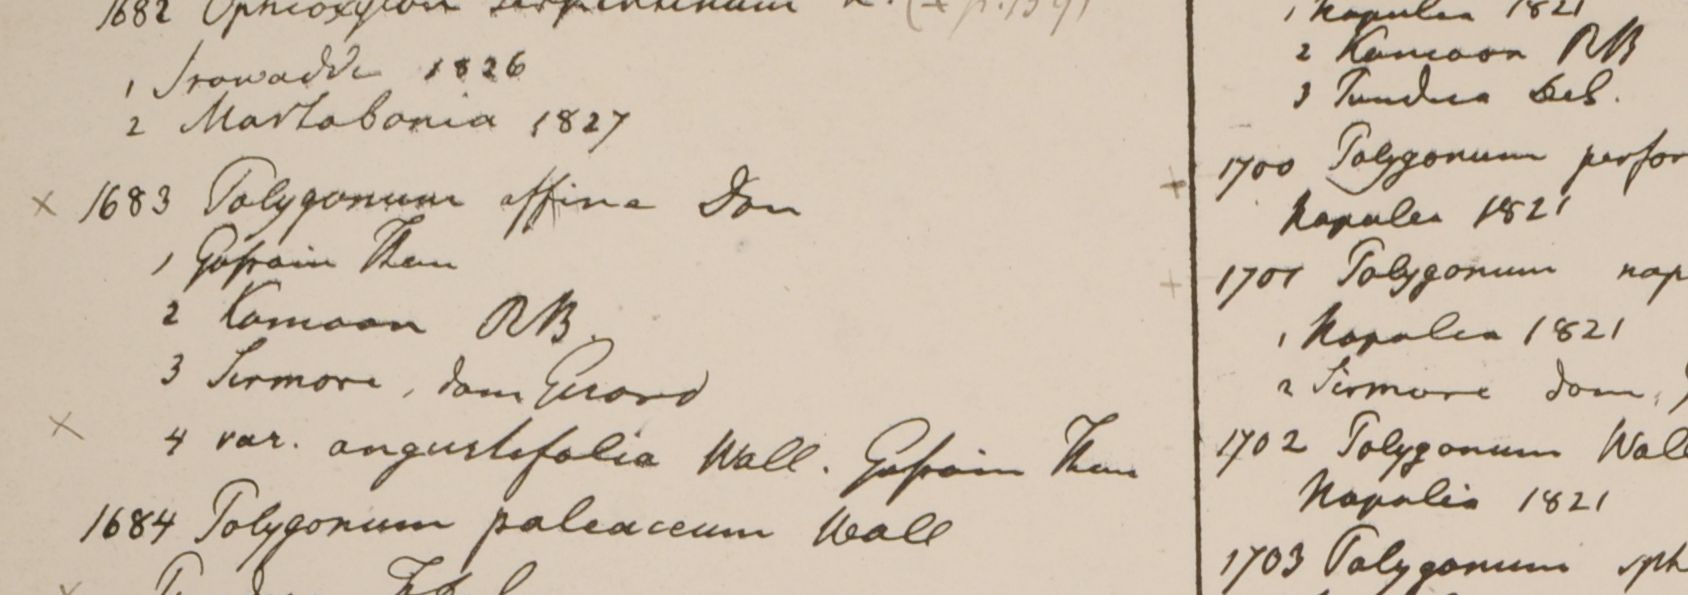 1682 Ophioxylon serpentinum L.
1 Irawaddi 1826
2 Martabania 1827
× 1683 Polygonum affine Don
1 Gossain Than
2 Kamaon RB.
3 Sirmore, dom Gerard
× 4 var. angustifolia Wall. Gossain Than
1684 Polygonum paleaceum Wall
1 Napalia 1821
2 Kamaon RB
3 Tundua Deb.
+ 1700 Polygonum perfor
Napalia 1821
+ 1701 Polygonum nap
1 Napalia 1821
2 Sirmore dom.
1702 Polygonum Wall
Napalia 1821
1703 Polygonum sph